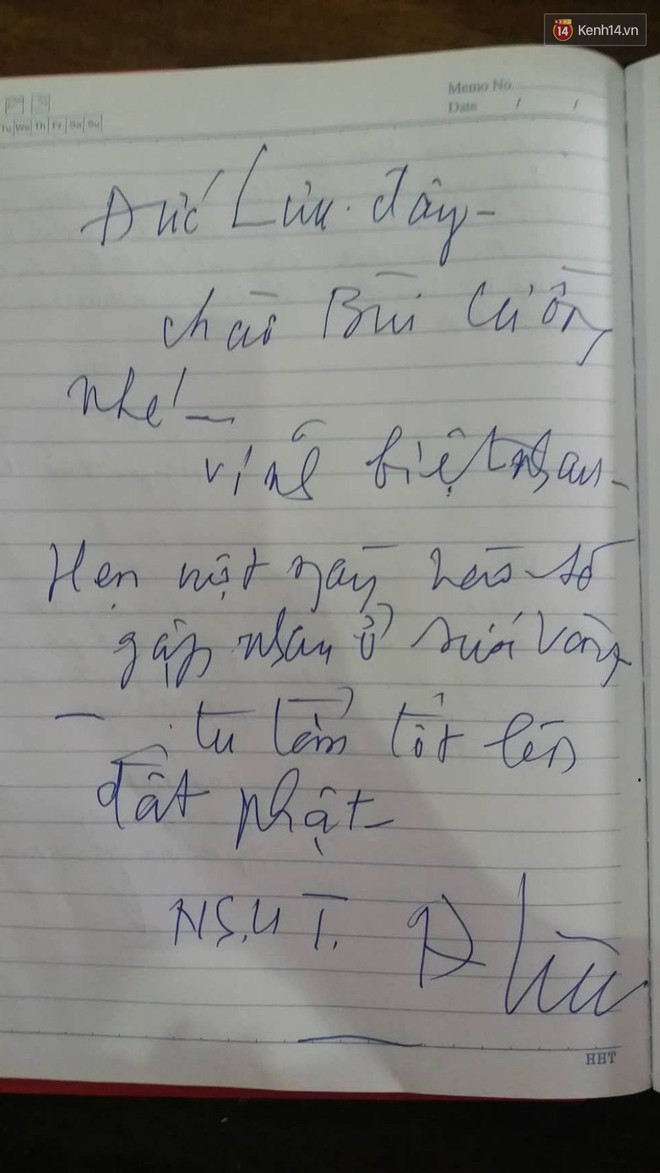 14 Kenh14.vn
Memo No.
Date / /
Tu We Th Fr Sa Su
Đức Lưu. đây -
chào Bùi Cường
nhé! -
vĩnh biệt nhau -
Hẹn một ngày nào số
gặp nhau ở suối vàng
- tu tâm tốt lên
đất phật -
N.S.U.T. Đ Lưu
HHT